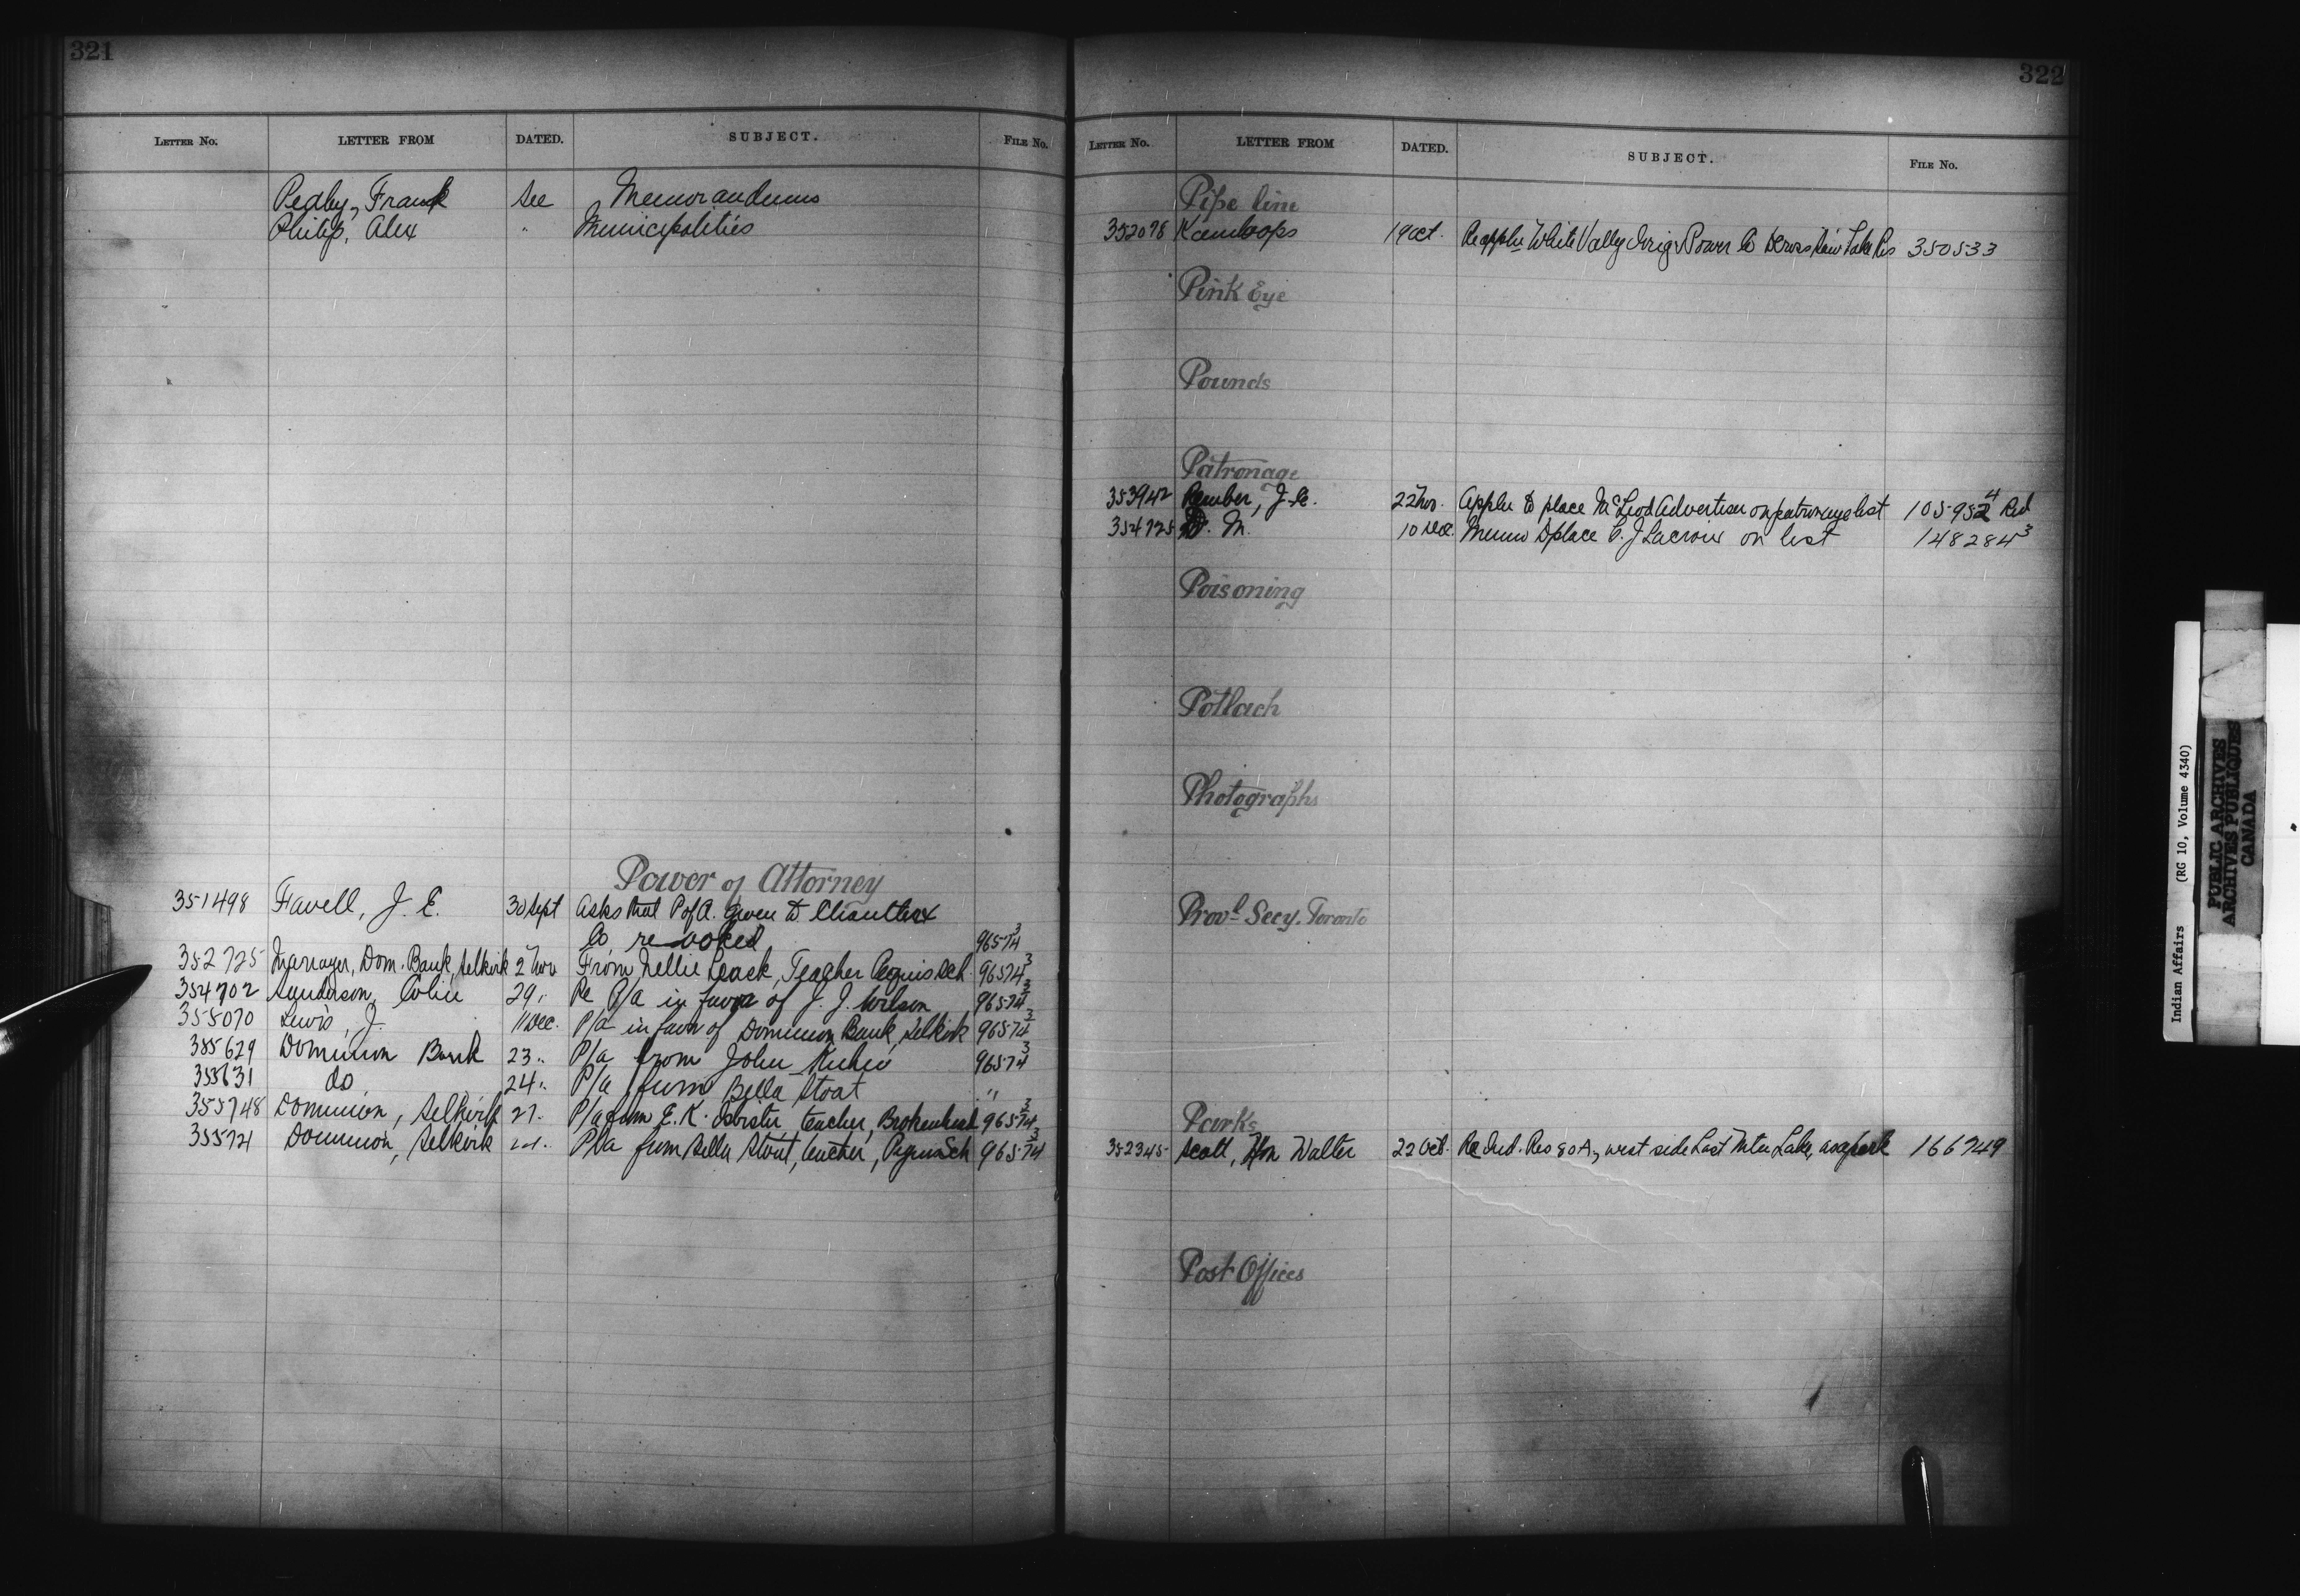 321
LETTER No. LETTER FROM DATED. SUBJECT. FILE No.
Pedley, Frank See Memorandums
Philip, Alex " Municipalities
Power of Attorney
351498 Favell, J. E. 30 Sept Asks that P of A. given to
Co revoked 96574³
352725 Manager, Dom. Bank, Selkirk 2 Nov From Nellie Leask, Teacher Peguis Sch. 96574³
354702 Sanderson, Colin 29 " Re P/a in favor of J. J. Wilson 96574³
355070 Lewis, J. 11 Dec. P/a in favor of Dominion Bank, Selkirk 96574³
355629 Dominion Bank 23 " P/a from John 96574³
355631 do 24 " P/a from Bella Stout "
355748 Dominion, Selkirk 27. P/a from E. K. teacher, Brokenhead 96574³
355721 Dominion, Selkirk P/a from Bella Stout, teacher, Peguis Sch 96574³
322
LETTER No. LETTER FROM DATED. SUBJECT. FILE No.
Pipe line
352078 Kamloops 19 Oct. Re appln White Valley Irrig & Power Co across Lake Res 350533
Pink Eye
Pounds
Patronage
353942 J. 22 Nov. Appln to place McLeod Advertiser on patronage list 105952⁴ Red
354725 D. M. 10 Dec. Memo to place C. J Lacroix on list 148284³
Poisoning
Potlach
Photographs
Provl Secy. Toronto
Parks
352345 Scott, Hon Walter 22 Oct. Re Ind. Res 80A, west side Last Mtn Lake, as a park 166749
Post Offices
Indian Affairs (RG 10, Volume 4340)
PUBLIC ARCHIVES
ARCHIVES PUBLIQUES
CANADA